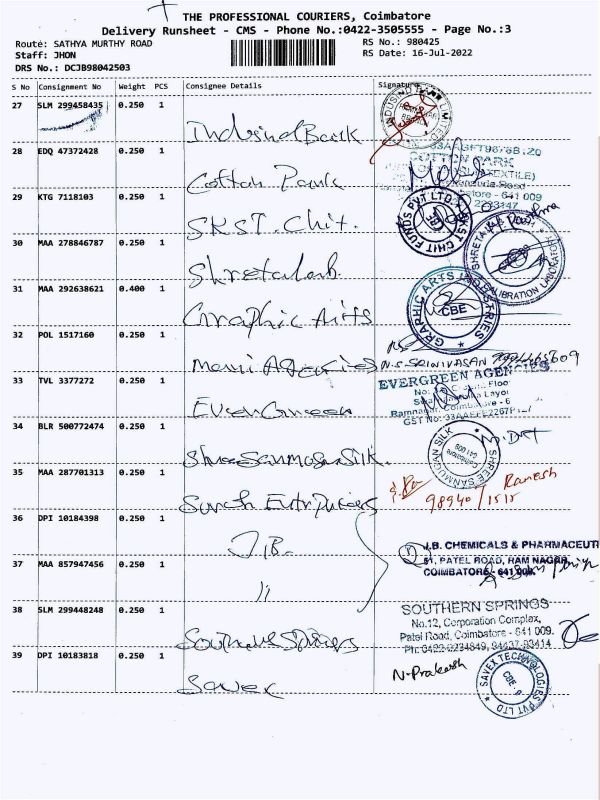 THE PROFESSIONAL COURIERS, Coimbatore
Delivery Runsheet - CMS - Phone No.:0422-3505555 - Page No.:3
Route: SATHYA MURTHY ROAD RS No.: 980425
Staff: JHON RS Date: 16-Jul-2022
DRS No.: DCJB98042503
S No Consignment No Weight PCS Consignee Details Signature
27 SLM 299458435 0.250 1
IndusInd Bank
28 EDQ 47372428 0.250 1
COTTON PARK
Cotton Park
641 009
29 KTG 7118103 0.250 1
SKST. Chit.
CHIT FUNDS PVT LTD
30 MAA 278846787 0.250 1
CALIBRATION LABORATORY
31 MAA 292638621 0.400 1
Graphic Arts
GRAPHIC ARTS INDUSTRIES
CBE
32 POL 1517160 0.250 1
N.S. SRINIVASAN
33 TVL 3377272 0.250 1
EVERGREEN AGENCIES
Ramnagar, Coimbatore - 6
GST No: 33AAEFE2267P
Evergreen
34 BLR 500772474 0.250 1
SHREE SANMUGAN SILK
Coimbatore
641 009
Shree Sanmugan Silk.
35 MAA 287701313 0.250 1
Ramesh
98940/1515
36 DPI 10184398 0.250 1
J.B.
J.B. CHEMICALS & PHARMACEUTI
61, PATEL ROAD, RAM NAGAR,
COIMBATORE - 641 009.
37 MAA 857947456 0.250 1
"
38 SLM 299448248 0.250 1
SOUTHERN SPRINGS
No.12, Corporation Complex,
Patel Road, Coimbatore - 641 009.
Ph: 0422-2234849, 94437-93414
Southern Springs
39 DPI 10183818 0.250 1
N. Prakash
Savex
SAVEX TECHNOLOGIES PVT LTD
CBE - 9